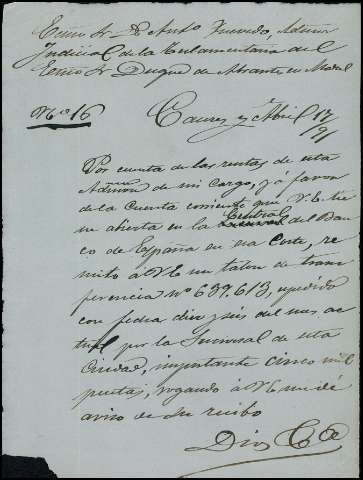 Excmo Sr. D. Anto Quevedo, Admor
Judicial de la Testamentaria del
Excmo Sr. Duque de Abrantes en Madd
No 16
Caceres y Abril 17/91
Por cuenta de las rentas de esta
Admon de mi cargo, y á favor
de la Cuenta corriente que V.E. tie
ne abierta en la Central del Ban
co de España en esa Corte, re
mito á V.E. un talon de trans
ferencia no 639.613, espedido
con fecha diez y seis del mes ac
tual por la Sucursal de esta
Ciudad, importante cinco mil
pesetas, rogando á V.E. me dé
aviso de su recibo
Dios &a